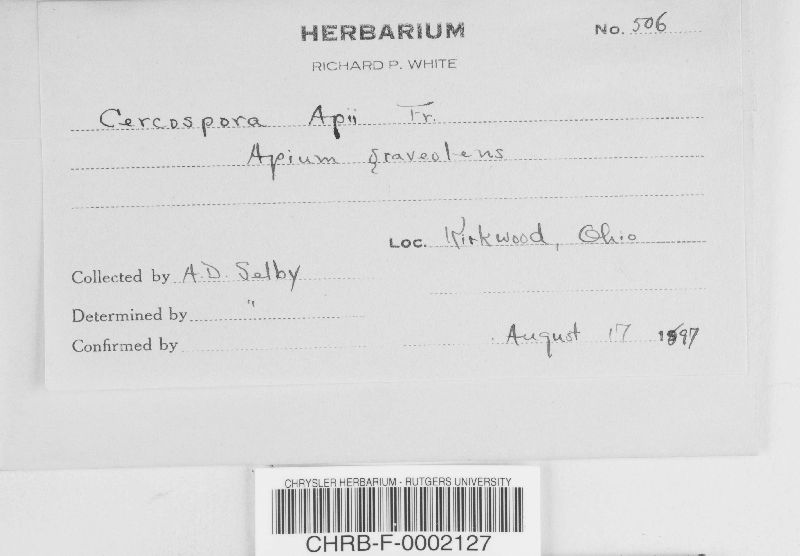 HERBARIUM
No. 506
RICHARD P. WHITE
Cercospora Apii Fr.
Apium graveolens
Loc. Kirkwood, Ohio
Collected by A.D. Selby
Determined by "
Confirmed by
August 17 1897
CHRYSLER HERBARIUM - RUTGERS UNIVERSITY
CHRB-F-0002127